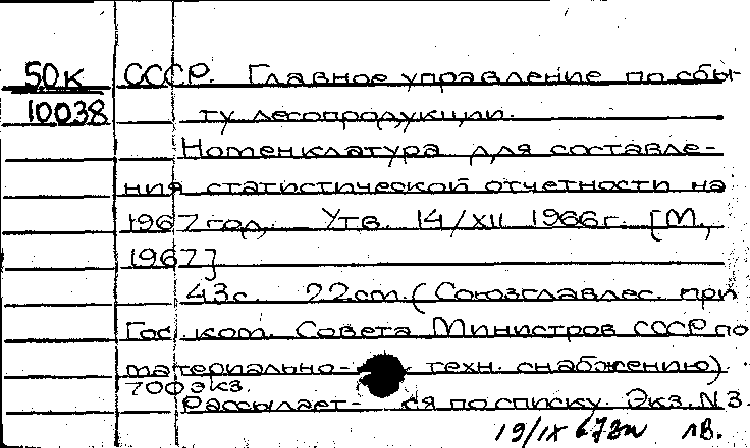 50К СССР. Главное управление по сбы-
10038 ту лесопродукции.
Номенклатура для составле-
ния статистической отчетности на
1967 год. Утв. 14/XII 1966г. [М.,
1967]
43с. 22см. (Союзглавлес. при
Гос. ком. Совета Министров СССР по
материально- техн. снабжению)
700 экз.
Рассылает- ся по списку. Экз. N 3.
19/IX 67 лв.